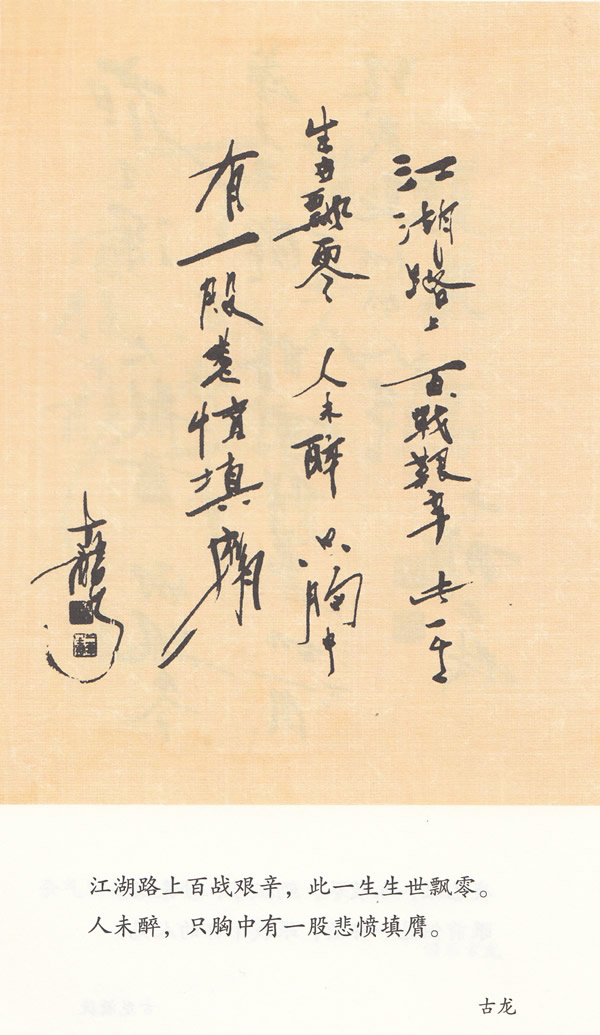 江湖路上百戰艱辛此一生
生世飄零人未醉只胸中
有一股悲憤填膺
古龍
江湖路上百战艰辛，此一生生世飘零。
人未醉，只胸中有一股悲愤填膺。
古龙